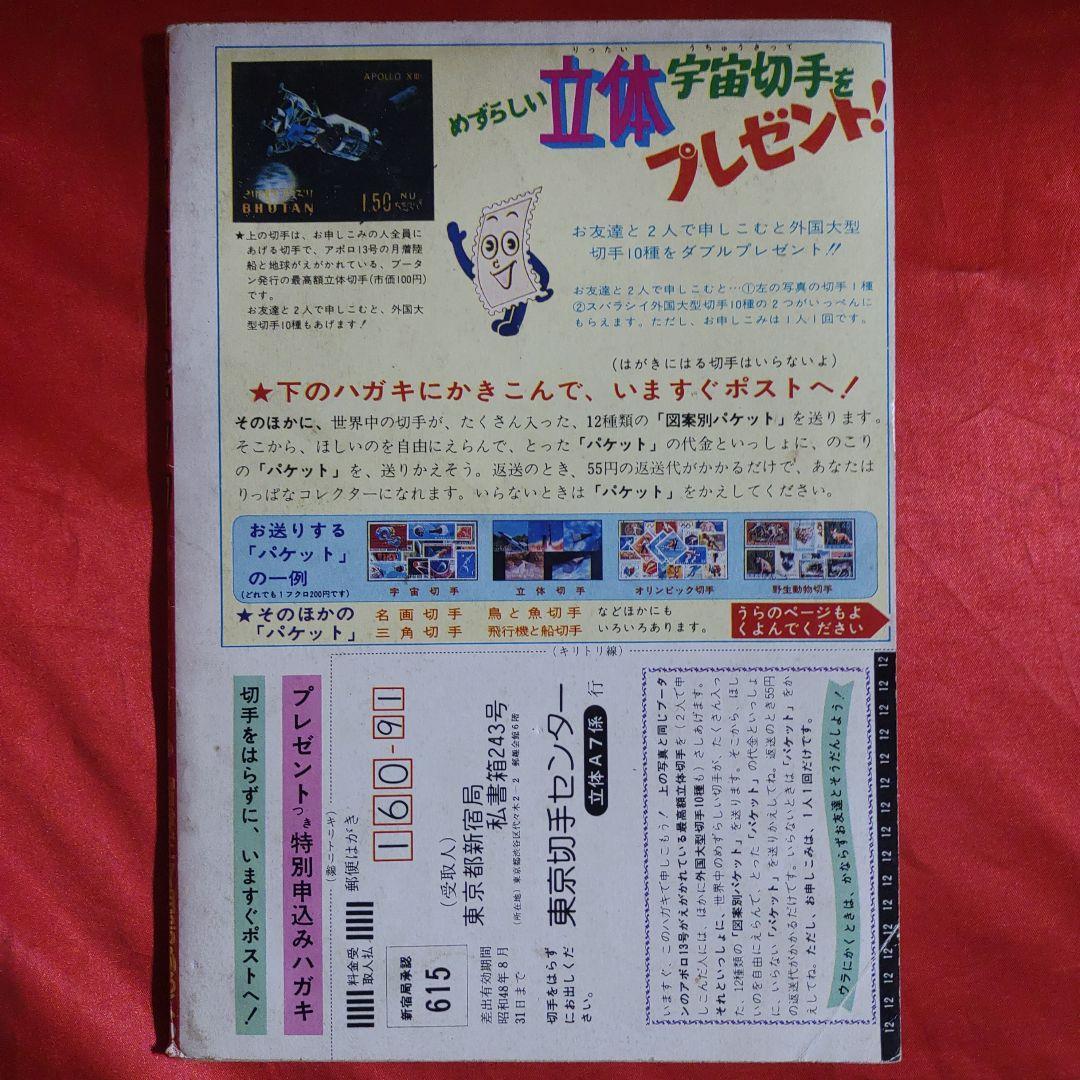 りったい
うちゅうきって
めずらしい立体宇宙切手を
プレゼント!
APOLLO XIII
BHUTAN
1.50 NU
★上の切手は、お申しこみの人全員に
あげる切手で、アポロ13号の月着陸
船と地球がえがかれている、ブータ
ン発行の最高額立体切手(市価100円)
です。
お友達と2人で申しこむと、外国大
型切手10種もあげます!
お友達と2人で申しこむと外国大型
切手10種をダブルプレゼント!!
お友達と2人で申しこむと…①左の写真の切手1種
②スバラシイ外国大型切手10種の2つがいっぺんに
もらえます。ただし、お申しこみは1人1回です。
(はがきにはる切手はいらないよ)
★下のハガキにかきこんで、いますぐポストへ!
そのほかに、世界中の切手が、たくさん入った、12種類の「図案別パケット」を送ります。
そこから、ほしいのを自由にえらんで、とった「パケット」の代金といっしょに、のこり
の「パケット」を、送りかえそう。返送のとき、55円の返送代がかかるだけで、あなたは
りっぱなコレクターになれます。いらないときは「パケット」をかえしてください。
お送りする
「パケット」
の一例
(どれでも1フクロ200円です)
宇宙切手
立体切手
オリンピック切手
野生動物切手
★そのほかの
「パケット」
名画切手 鳥と魚切手
三角切手 飛行機と船切手
などほかにも
いろいろあります。
うらのページもよ
くよんでください
(キリトリ線)
切手をはらずに、いますぐポストへ!
プレゼントつき特別申込みハガキ
郵便はがき
160-91
料金受
取人払
新宿局承認
615
差出有効期間
昭和48年8月
31日まで
切手をはらず
にお出しくだ
さい。
(受取人)
東京都新宿局
私書箱243号
(所在地)東京都渋谷区代々木2-2 郵趣会館6階
東京切手センター
立体A7係 行
いますぐ、このハガキで申しこもう!上の写真と同じブータ
ンのアポロ13号がえがかれている最高額立体切手を(2人で申
しこんだ人には、ほかに外国大型切手10種も)さしあげます。
それといっしょに、世界中のめずらしい切手が、たくさん入っ
た、12種類の「図案別パケット」を送ります。そこから、ほし
いのを自由にえらんで、とった「パケット」の代金といっしょ
に、いらない「パケット」を送りかえしてね。返送のとき55円
の返送代がかかるだけです。いらないときは「パケット」をか
えしてね。ただし、お申しこみは、1人1回だけです。
ウラにかくときは、かならずお友達とそうだんしよう!
12 12 12 12 12 12 12 12 12 12 12 12 12 12 12